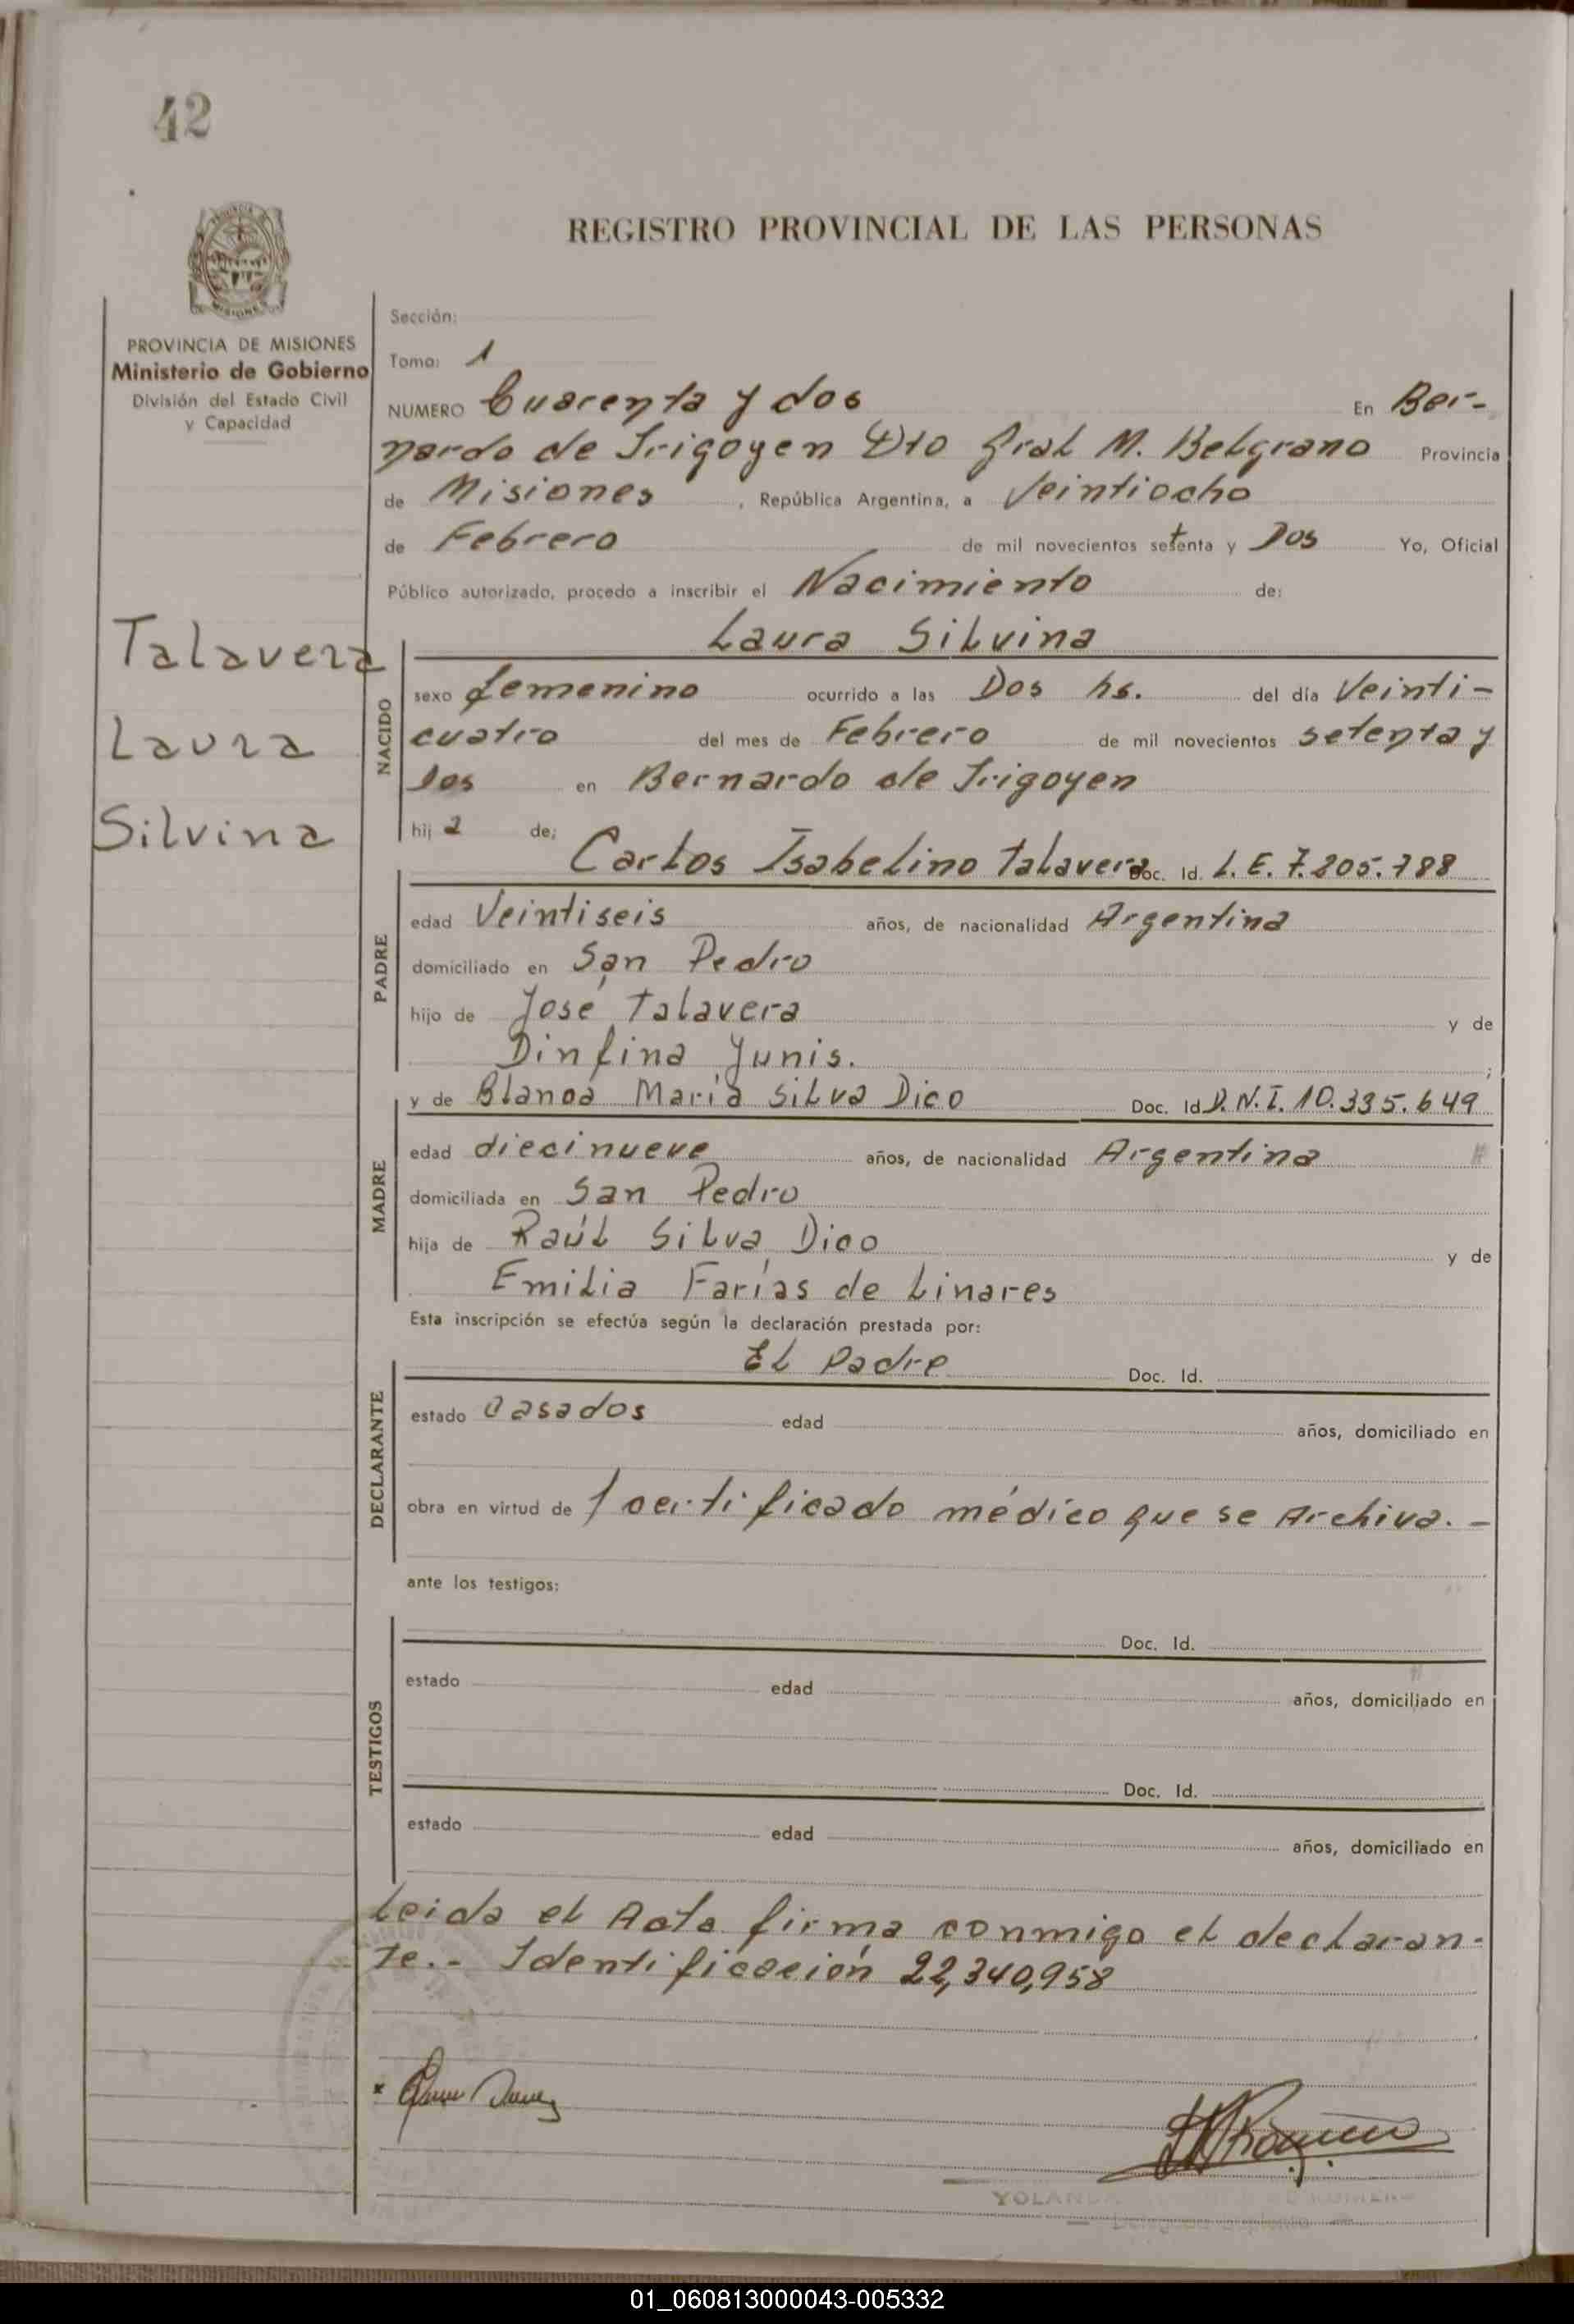 42
REGISTRO PROVINCIAL DE LAS PERSONAS
PROVINCIA DE MISIONES
Ministerio de Gobierno
División del Estado Civil
y Capacidad
Talavera
Laura
Silvina
Sección:
Tomo: 1
NUMERO Cuarenta y dos En Ber-
nardo de Irigoyen Dto Gral M. Belgrano Provincia
de Misiones, República Argentina, a Veintiocho
de Febrero de mil novecientos setenta y Dos Yo, Oficial
Público autorizado, procedo a inscribir el Nacimiento de:
Laura Silvina
NACIDO
sexo femenino ocurrido a las Dos hs. del día Veinti-
cuatro del mes de Febrero de mil novecientos setenta y
dos en Bernardo de Irigoyen
hija de:
Carlos Isabelino Talavera Doc. Id. L. E. 7.205.788
PADRE
edad Veintiseis años, de nacionalidad Argentina
domiciliado en San Pedro
hijo de José Talavera y de
Dinfina Yunis. ;
y de Blanca María Silva Dico Doc. Id. D.N.I. 10.335.649
MADRE
edad diecinueve años, de nacionalidad Argentina
domiciliada en San Pedro
hija de Raúl Silva Dico y de
Emilia Farías de Linares
Esta inscripción se efectúa según la declaración prestada por:
El Padre Doc. Id.
DECLARANTE
estado casados edad años, domiciliado en
obra en virtud de 1 certificado médico que se Archiva. -
ante los testigos:
Doc. Id.
TESTIGOS
estado edad años, domiciliado en
Doc. Id.
estado edad años, domiciliado en
Leida el Acta firma conmigo el declaran-
te.- Identificación 22,340,958
YOLANDA
01_060813000043-005332